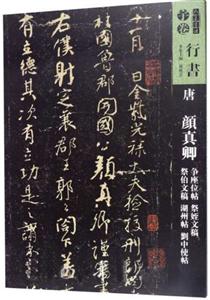 行書
唐
顔真卿
争座位帖 祭姪文稿
祭伯文稿 湖州帖 劉中使帖
十一月日金紫光禄大夫檢校刑部尚
書上柱國魯郡開國公顔真卿
右僕射定襄郡王郭公閣下蓋太上
有立德其次有立功是之謂不朽